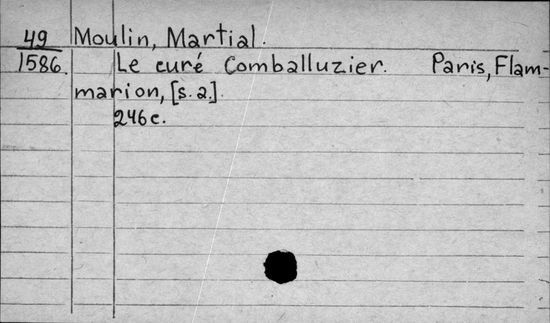 49 Moulin, Martial.
1586. Le curé Comballuzier. Paris, Flam-
marion, [s.a].
246 c.